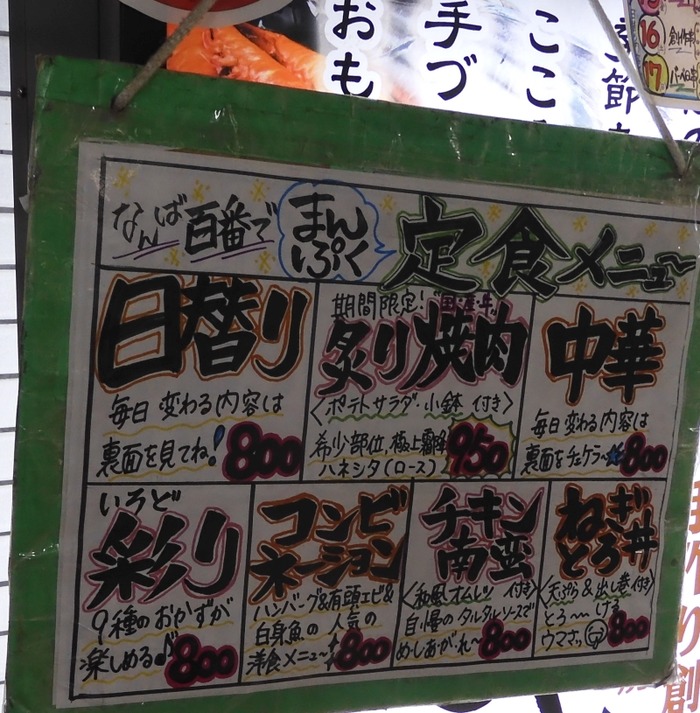 おも
手づ
ここ
季節
16
17
なんば百番で
まんぷく
定食メニュー
日替り
毎日変わる内容は
裏面を見てね! 800
期間限定!"国産牛"
炙り焼肉
<ポテトサラダ・小鉢 付き>
希少部位,極上霜降
ハネシタ(ロース) 950
中華
毎日変わる内容は
裏面をチェケラ〜 800
いろど
彩り
9種のおかずが
楽しめる♪ 800
コンビ
ネーション
ハンバーグ&有頭エビ&
白身魚の 人気の
洋食メニュー 800
チキン
南蛮
<和風オムレツ 付き>
自慢のタルタルソースで
めしあがれ〜 800
ねぎ
とろ丼
<天ぷら&出し巻付き>
とろ〜ける
ウマさっ 800
り創